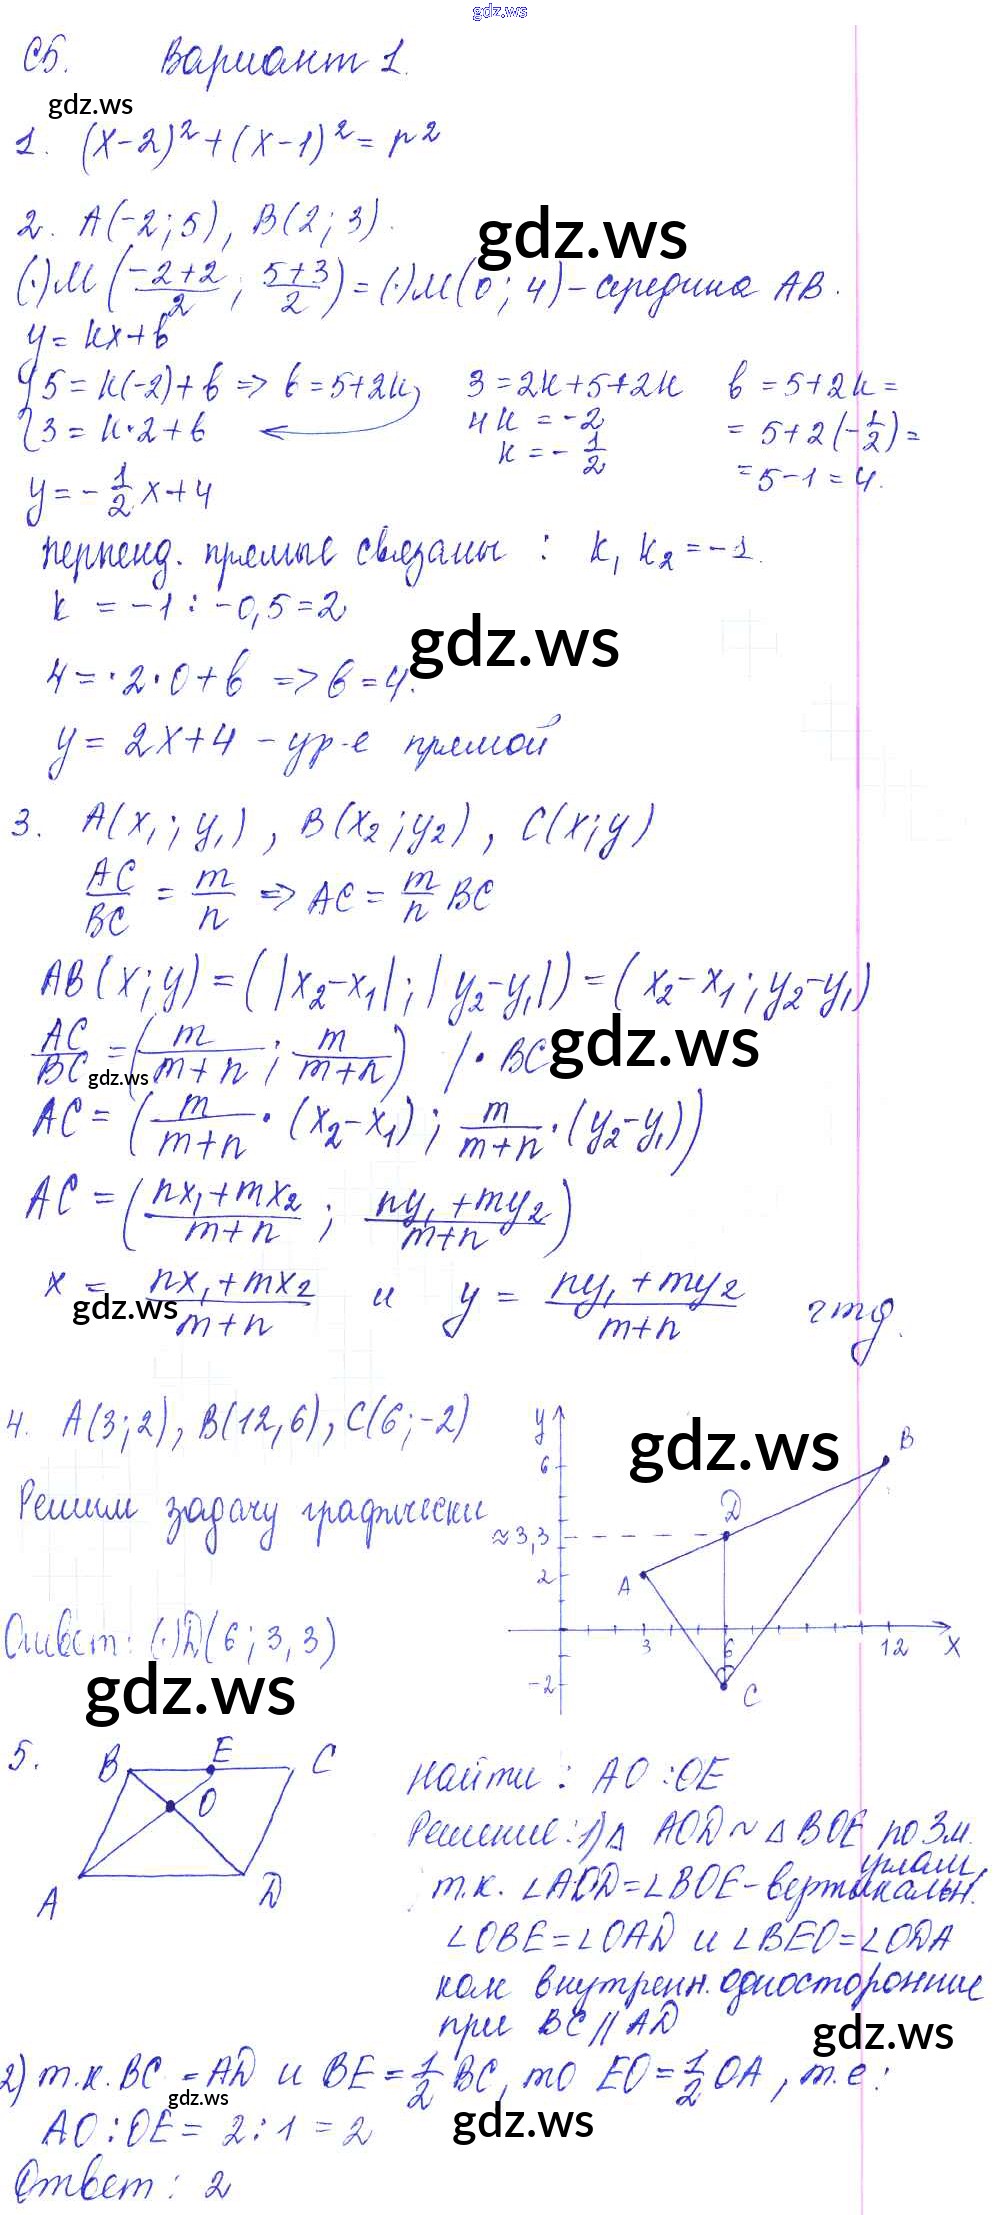 gdz.ws
С5. Вариант 1.
gdz.ws
1. (x-2)² + (x-1)² = r²
2. A(-2; 5), B(2; 3).
gdz.ws
(·)M ((-2+2)/2 ; (5+3)/2) = (·)M(0; 4) - середина AB.
y = kx+b
{5 = k(-2)+b => b = 5+2k, 3 = 2k+5+2k b = 5+2k =
{3 = k·2+b 4k = -2 = 5+2(-1/2) =
k = -1/2 = 5-1 = 4.
y = -1/2 x+4
перпенд. прямые связаны : k₁ k₂ = -1.
k = -1 : -0,5 = 2
gdz.ws
4 = ·2·0+b => b = 4.
y = 2x+4 - ур-е прямой
3. A(x₁; y₁), B(x₂; y₂), C(x; y)
AC/BC = m/n => AC = m/n BC
AB(x; y) = (|x₂-x₁|; |y₂-y₁|) = (x₂-x₁; y₂-y₁)
gdz.ws
AC/BC = (m/(m+n) ; m/(m+n)) |· BC
gdz.ws
AC = (m/(m+n) · (x₂-x₁); m/(m+n) · (y₂-y₁))
AC = ((nx₁+mx₂)/(m+n) ; (ny₁+my₂)/(m+n))
x = (nx₁+mx₂)/(m+n) и y = (ny₁+my₂)/(m+n) чтд.
gdz.ws
4. A(3; 2), B(12, 6), C(6; -2)
gdz.ws
Решим задачу графически
y
6
≈3,3
2
-2
3
6
12
x
A
B
C
D
Ответ: (·)D(6; 3,3)
gdz.ws
5.
B
E
C
O
A
D
Найти: AO : OE
Решение: 1) Δ AOD ~ Δ BOE по 3м.
углам,
т.к. ∠AOD = ∠BOE - вертикальн.
∠OBE = ∠OAD и ∠BEO = ∠ODA
как внутренн. односторонние
при BC || AD
gdz.ws
2) т.к. BC = AD и BE = 1/2 BC, то EO = 1/2 OA, т.е:
gdz.ws
AO : OE = 2 : 1 = 2
gdz.ws
Ответ: 2